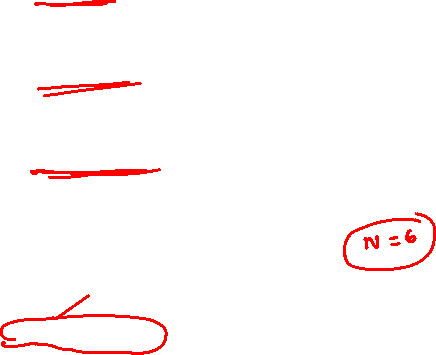 N = 6